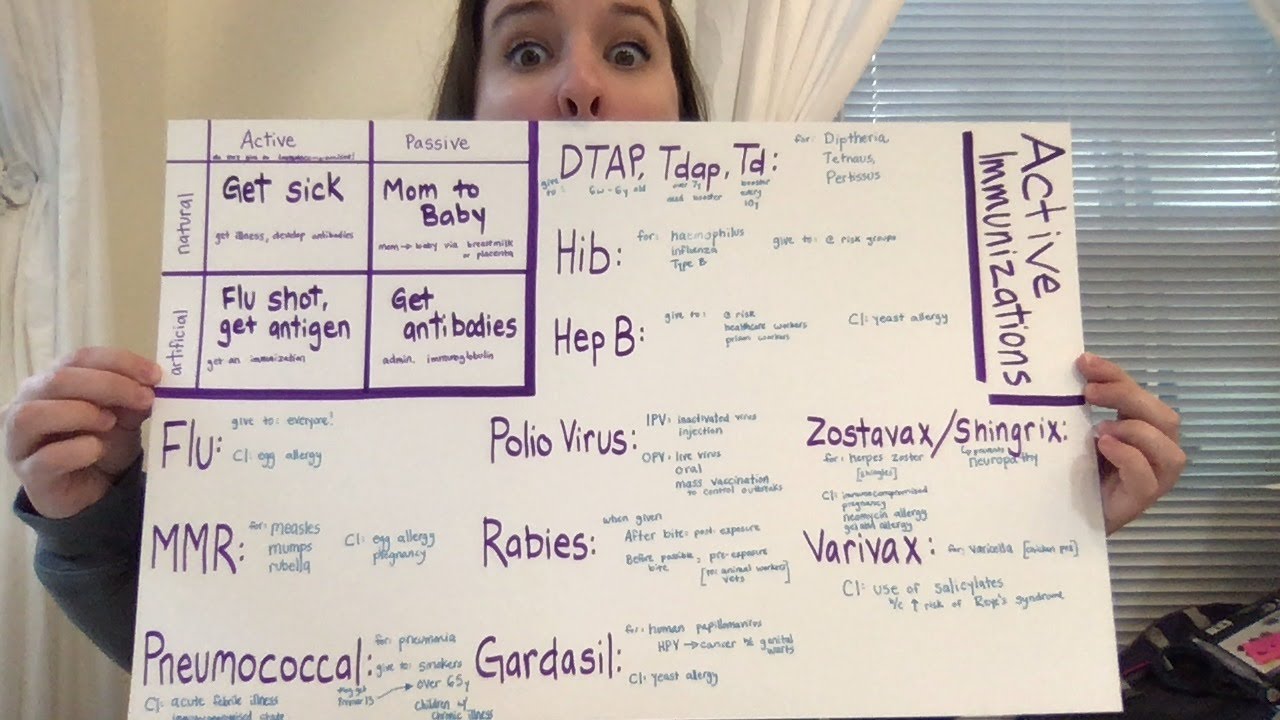 Active
Passive
natural
Get sick
get illness, develop antibodies
Mom to
Baby
mom → baby via breastmilk
or placenta
artificial
Flu shot,
get antigen
get an immunization
Get
antibodies
admin. immunoglobulin
DTAP, Tdap, Td:
for: Diptheria,
Tetnaus,
Pertissus
give to:
6w - 6y old
over 7y
need booster
booster
every
10y
Hib:
for: haemophilus
influenza
Type B
give to: @ risk groups
Hep B:
give to: @ risk
healthcare workers
prison workers
CI: yeast allergy
Active
Immunizations
Flu:
give to: everyone!
CI: egg allergy
Polio Virus:
IPV: inactivated virus
injection
OPV: live virus
oral
mass vaccination
to control outbreaks
Zostavax/Shingrix:
for: herpes zoster
[shingles]
↳ prevents
neuropathy
CI: immunocompromised
pregnancy
neomycin allergy
gelatin allergy
MMR:
for: measles
mumps
rubella
CI: egg allergy
pregnancy
Rabies:
when given
After bite: post-exposure
Before possible, pre-exposure
bite
[to: animal workers]
vets
Varivax:
for: varicella [chicken pox]
CI: use of salicylates
b/c ↑ risk of Reye's syndrome
Pneumococcal:
for: pneumonia
give to: smokers
over 65y
children w/
chronic illness
Prevnar 13
CI: acute febrile illness
immunocompromised state
Gardasil:
for: human papillomavirus
HPV → cancer & genital
warts
CI: yeast allergy